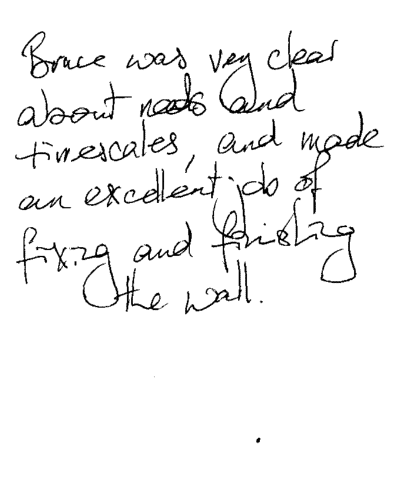 Bruce was very clear
about needs and
timescales, and made
an excellent job of
fixing and finishing
the wall.